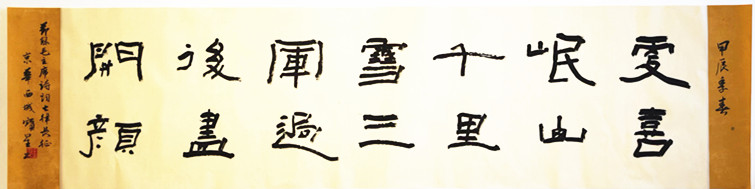 甲辰季春
更喜
岷山
千里
雪三
軍過
後盡
開顏
毛主席詩詞七律長征
京華西城